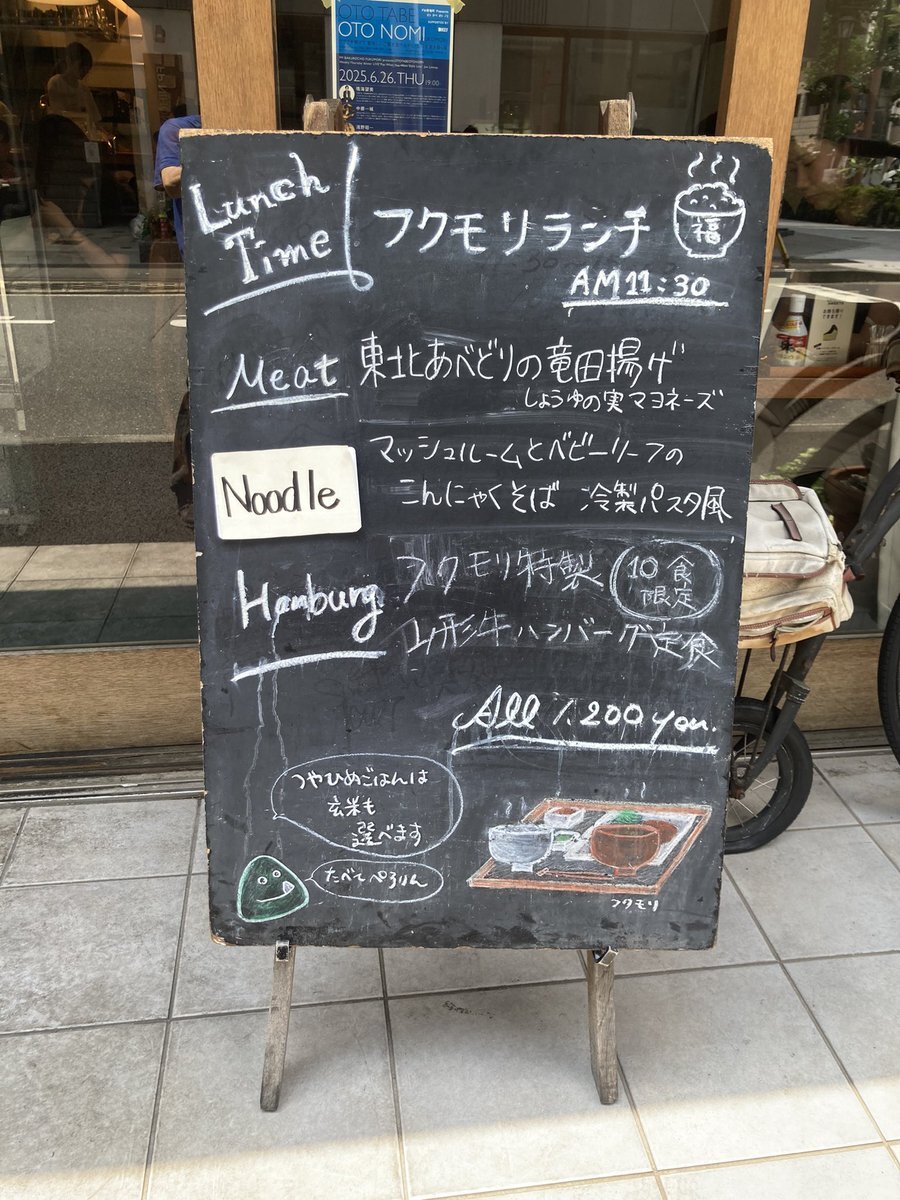 OTO TABE
OTO NOMI
2025.6.26.THU 19:00
Lunch
Time
フクモリランチ
福
AM11:30
Meat
東北あべどりの竜田揚げ
しょうゆの実マヨネーズ
Noodle
マッシュルームとベビーリーフの
こんにゃくそば 冷製パスタ風
Hamburg
フクモリ特製
10食
限定
山形牛ハンバーグ定食
All 1.200 yen.
つやひめごはんは
玄米も
選べます
たべてぺろりん
フクモリ